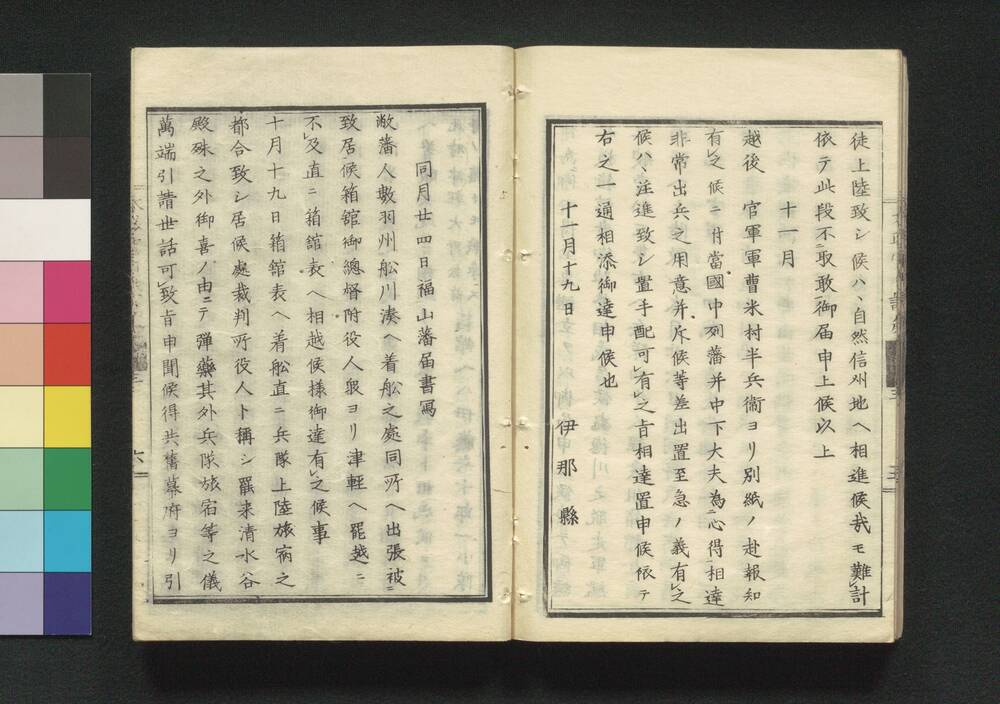 徒上陸致シ候ハヽ自然信州地ヘ相進候哉モ難レ計
依テ此段不二取敢一御届申上候以上
十一月
越後 官軍軍曹米村半兵衞ヨリ別紙ノ赴報知
有レ之候ニ付當國中列藩并中下大夫為二心得一相達
非常出兵之用意并斥候等差出置至急ノ義有レ之
候ハヽ注進致シ置手配可レ有レ之旨相達置申候依テ
右之一通相添御達申候也
十一月十九日 伊那縣
同月廿四日福山藩届書寫
敝藩人數羽州舩川湊ヘ着舩之處同所ヘ出張被二
致居一候箱舘御總督附役人衆ヨリ津輕ヘ罷越ニ
不レ及直ニ箱舘表ヘ相越候様御達有レ之候事
十月十九日箱舘表ヘ着舩直ニ兵隊上陸旅宿之
都合致シ居候處裁判所役人ト稱シ罷来清水谷
殿殊之外御喜ノ由ニテ彈藥其外兵隊旅宿等之儀
萬端引請世話可レ致旨申聞候得共舊幕府ヨリ引